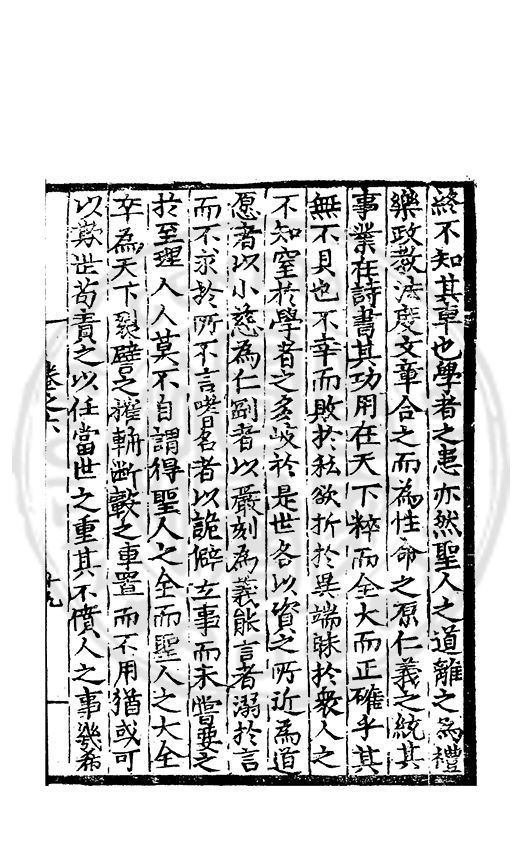 終不知其車也學者之患亦然聖人之道離之為禮
樂政教法度文章合之而為性命之原仁義之統其
事業在詩書其功用在天下粹而全大而正確乎其
無不具也不幸而敗於私欲折於異端昧於衆人之
不知窒於學者之多岐於是世各以資之所近為道
愿者以小慈為仁剛者以嚴刻為義能言者溺於言
而不求於所不言嗜名者以詭僻立事而未嘗要之
於至理人人莫不自謂得聖人之全而聖人之大全
卒為天下裂譬之摧輈斷轂之車置而不用猶或可
以欺世苟責之以任當世之重其不僨人之事幾希
卷之六
十九